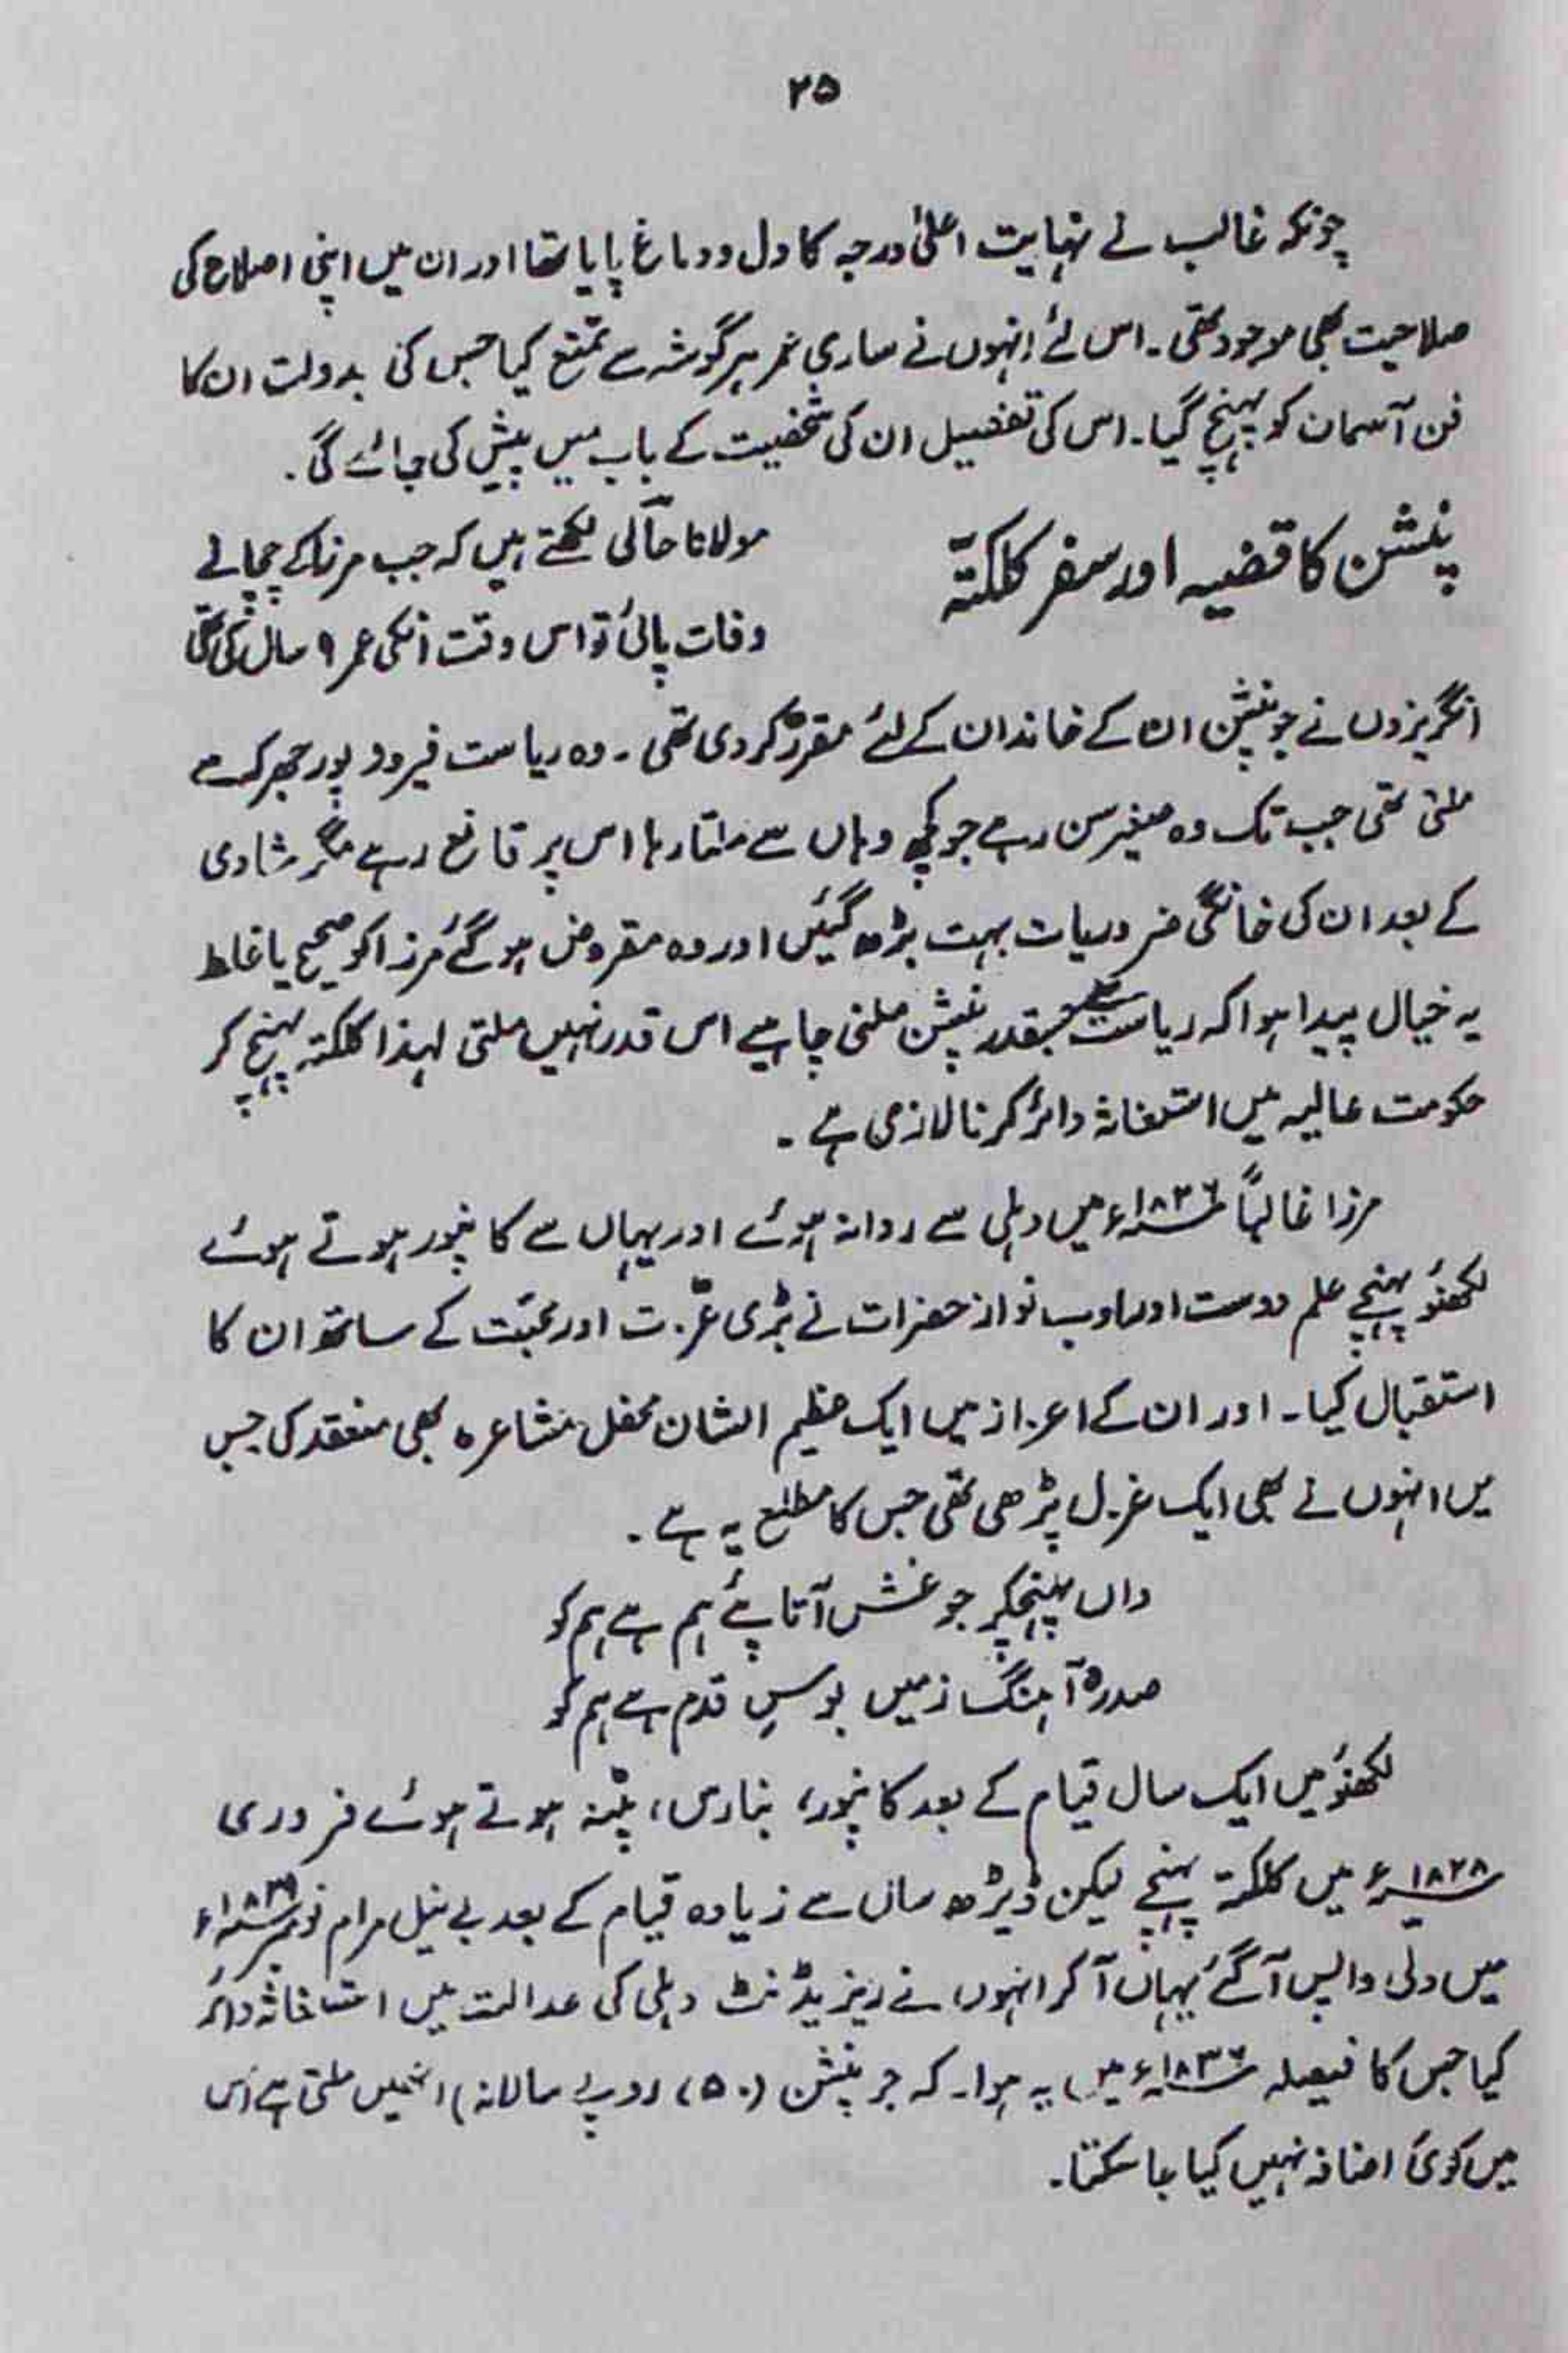 ۲۵
چونکہ غالب نے نہایت اعلیٰ درجہ کا دل و دماغ پایا تھا اور ان میں اپنی اصلاح کی
صلاحیت بھی موجود تھی۔ اس لئے انہوں نے ساری عمر ہر گوشہ سے تمتع کیا جس کی بدولت ان کا
فن آسمان کو پہنچ گیا۔ اس کی تفصیل ان کی شخصیت کے باب میں پیش کی جائے گی۔
پنشن کا قضیہ اور سفر کلکتّہ
مولانا حالی لکھتے ہیں کہ جب مرزا کے چچا نے
وفات پائی تو اس وقت انکی عمر ۹ سال کی تھی
انگریزوں نے جو پنشن ان کے خاندان کے لئے مقرّر کر دی تھی۔ وہ ریاست فیروز پور جھرکہ سے
ملتی تھی جب تک وہ صغیر سن رہے جو کچھ وہاں سے ملتا رہا اس پر قانع رہے مگر شادی
کے بعد ان کی خانگی ضروریات بہت بڑھ گئیں اور وہ مقروض ہو گئے مرزا کو صحیح یا غلط
یہ خیال پیدا ہوا کہ ریاست سے جسقدر پنشن ملنی چاہیے اس قدر نہیں ملتی لہذا کلکتہ پہنچ کر
حکومت عالیہ میں استغاثہ دائر کرنا لازمی ہے۔
مرزا غالباً ۱۸۲۶ء میں دہلی سے روانہ ہوئے اور یہاں سے کانپور ہوتے ہوئے
لکھنؤ پہنچے علم دوست اور ادب نواز حضرات نے بڑی عزّت اور محبّت کے ساتھ ان کا
استقبال کیا۔ اور ان کے اعزاز میں ایک عظیم الشان محفل مشاعرہ بھی منعقد کی جس
میں انہوں نے بھی ایک غزل پڑھی تھی جس کا مطلع یہ ہے۔
واں پہنچکر جو غش آتا پئے ہم ہے ہم کو
صدرہ آہنگ زمیں بوسِ قدم ہے ہم کو
لکھنؤ میں ایک سال قیام کے بعد کانپور، بنارس، پٹنہ ہوتے ہوئے فروری
۱۸۲۸ء میں کلکتہ پہنچے لیکن ڈیڑھ سال سے زیادہ قیام کے بعد بے نیل مرام نومبر ۱۸۲۹ء
میں دلی واپس آ گئے یہاں آ کر انہوں نے ریزیڈنٹ دہلی کی عدالت میں استغاثہ دائر
کیا جس کا فیصلہ ۱۸۳۶ء میں یہ ہوا۔ کہ جو پنشن (۷۵۰ روپے سالانہ) انہیں ملتی ہے اس
میں کوئی اضافہ نہیں کیا جا سکتا۔